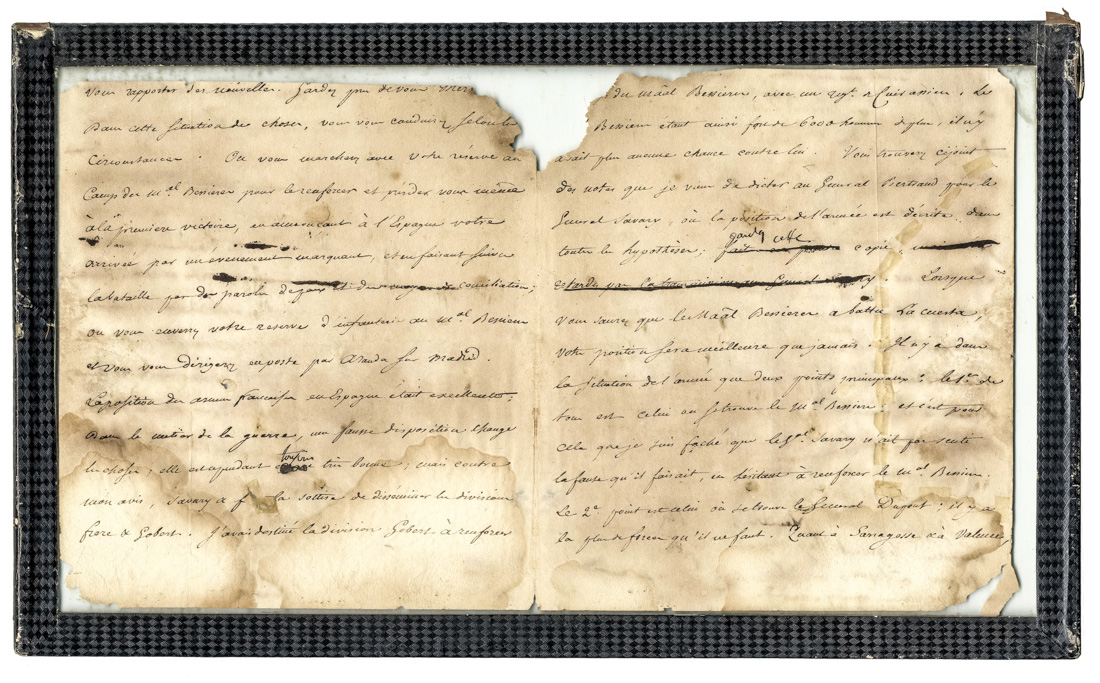 vous rapporter des nouvelles. Gardez peu de vous
Dans cette situation des choses, vous vous conduirez selon les
circonstances. Ou vous marcherez avec votre réserve au
Camp du Mal Bessières pour le renforcer et rendez vous même
à la première victoire, en annonçant à l'Espagne votre
arrivée par un événement marquant, et en faisant suivre
la bataille par des paroles de paix et de conciliation;
ou vous enverrez votre reserve d'infanterie au Mal Bessières
et vous vous dirigerez en poste par Aranda sur Madrid.
La position du armée française en Espagne était excellente.
Dans le métier de la guerre, une fausse disposition change
les choses; elle est cependant toujours très bonne; mais contre
mon avis, Savary a f la sottise de disséminer les divisions
frere & Gobert. J'avais destiné la division Gobert à renforcer
du Maal Bessieres, avec un régt. de Cuirassiers. Le
Bessieres étant ainsi fort de 6000 hommes de plus, il n'y
avait plus aucune chance contre lui. Vous trouverez cijoint
des notes que je viens de dicter au Général Bertrand pour le
Général Savary, où la position de l'armée est décrite dans
toutes les hypothèses; gardez cette copie. Lorsque
vous saurez que le Maal Bessieres a battu la Cuesta,
votre position sera meilleure que jamais. Il y a dans
la situation de l'armée que deux points principaux: le 1er de
tous est celui ou se trouve le Mal Bessieres; et c'est pour
cela que je suis faché que le Gal Savary n'ait pas senti
la faute qu'il faisait, en hésitant à renforcer le Mal Bessieres.
Le 2e point est celui où se trouve le Général Dupont; il y a
là plus de forces qu'il ne faut. Quant à Sarragosse & à Valence,